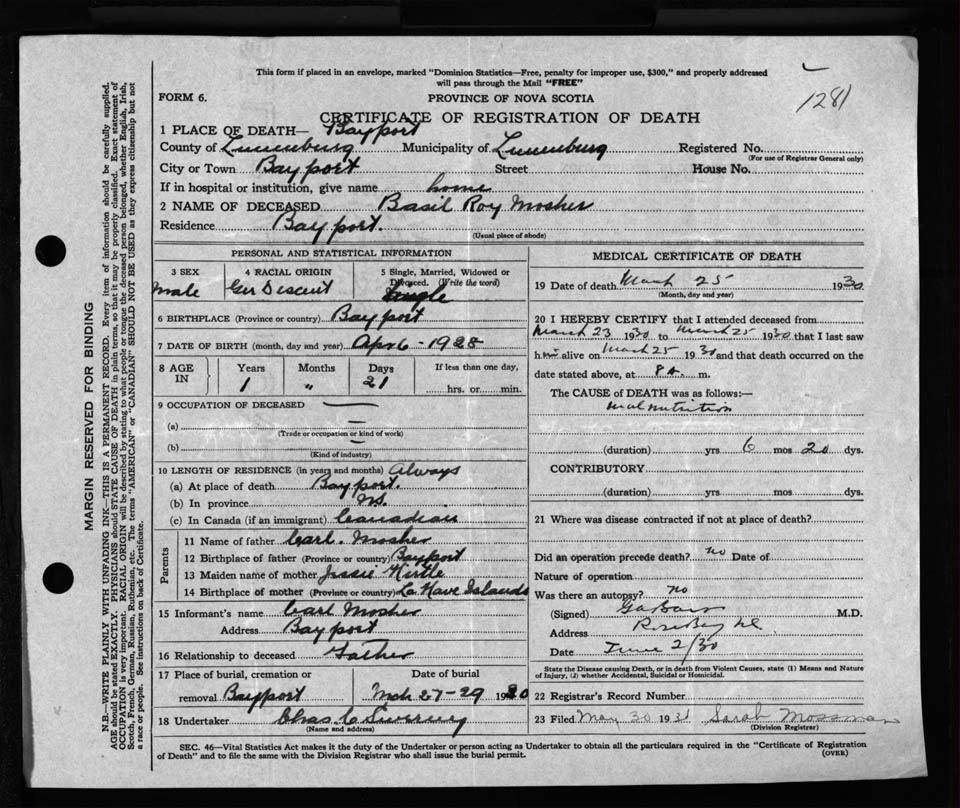 This form if placed in an envelope, marked "Dominion Statistics—Free, penalty for improper use, $300," and properly addressed
will pass through the Mail "FREE"
1281
FORM 6.
PROVINCE OF NOVA SCOTIA
CERTIFICATE OF REGISTRATION OF DEATH
1 PLACE OF DEATH— Bayport
County of Lunenburg Municipality of Lunenburg Registered No.
(For use of Registrar General only)
City or Town Bayport Street House No.
If in hospital or institution, give name home
2 NAME OF DECEASED Basil Roy Mosher
Residence Bayport.
(Usual place of abode)
PERSONAL AND STATISTICAL INFORMATION
3 SEX 4 RACIAL ORIGIN 5 Single, Married, Widowed or
Divorced. (Write the word)
male Ger Descent Single
6 BIRTHPLACE (Province or country) Bayport
7 DATE OF BIRTH (month, day and year) Apr 6 - 1928
8 AGE IN Years Months Days If less than one day,
1 " 21 hrs. or min.
9 OCCUPATION OF DECEASED —
(a) —
(Trade or occupation or kind of work)
(b) —
(Kind of industry)
10 LENGTH OF RESIDENCE (in years and months) Always
(a) At place of death Bayport.
(b) In province N.S.
(c) In Canada (if an immigrant) Canadian
Parents
11 Name of father Carl. Mosher
12 Birthplace of father (Province or country) Bayport
13 Maiden name of mother Jessie Hirtle
14 Birthplace of mother (Province or country) La Have Islands
15 Informant's name Carl Mosher
Address Bayport
16 Relationship to deceased Father
17 Place of burial, cremation or Date of burial
removal Bayport Mch 27-29 1930
18 Undertaker Chas C
(Name and address)
MEDICAL CERTIFICATE OF DEATH
19 Date of death March 25 1930
(Month, day and year)
20 I HEREBY CERTIFY that I attended deceased from
March 23 1930 to March 25 1930 that I last saw
him alive on March 25 1930 and that death occurred on the
date stated above, at 8 A. m.
The CAUSE of DEATH was as follows:—
Malnutrition
(duration) yrs 6 mos 20 dys.
CONTRIBUTORY
(duration) yrs. mos. dys.
21 Where was disease contracted if not at place of death?
Did an operation precede death? no Date of
Nature of operation
Was there an autopsy? no
(Signed) M.D.
Address Rose Bay
Date June 2/30
State the Disease causing Death, or in death from Violent Causes, state (1) Means and Nature
of Injury, (2) whether Accidental, Suicidal or Homicidal.
22 Registrar's Record Number
23 Filed May 30 1931 Sarah Mossman
(Division Registrar)
SEC. 46—Vital Statistics Act makes it the duty of the Undertaker or person acting as Undertaker to obtain all the particulars required in the "Certificate of Registration
of Death" and to file the same with the Division Registrar who shall issue the burial permit.
(OVER)
MARGIN RESERVED FOR BINDING
N.B.—WRITE PLAINLY WITH UNFADING INK—THIS IS A PERMANENT RECORD. Every item of information should be carefully supplied.
AGE should be stated EXACTLY. PHYSICIANS should STATE CAUSE OF DEATH in plain terms, so that it may be properly classified. Exact statement of
OCCUPATION is very important. RACIAL ORIGIN will be described by stating to what people or tongue the deceased person belonged, whether English, Irish,
Scotch, French, German, Russian, Ruthenian, etc. The terms "AMERICAN" or "CANADIAN" SHOULD NOT BE USED as they express citizenship but not
a race or people. See instructions on back of Certificate.